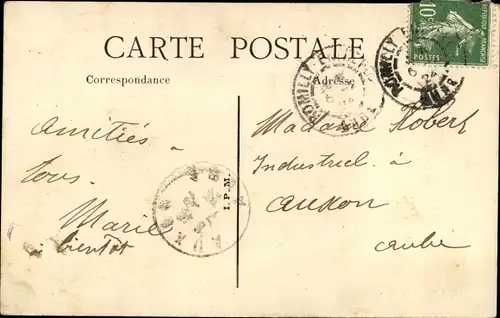 CARTE POSTALE
Correspondance
Adresse
10c
POSTES
ROMILLY
ROMILLY
Amitiés à
tous
Marie
bientôt
I.P.M.
Madame Robert
Industriel à
Auxon
Aube